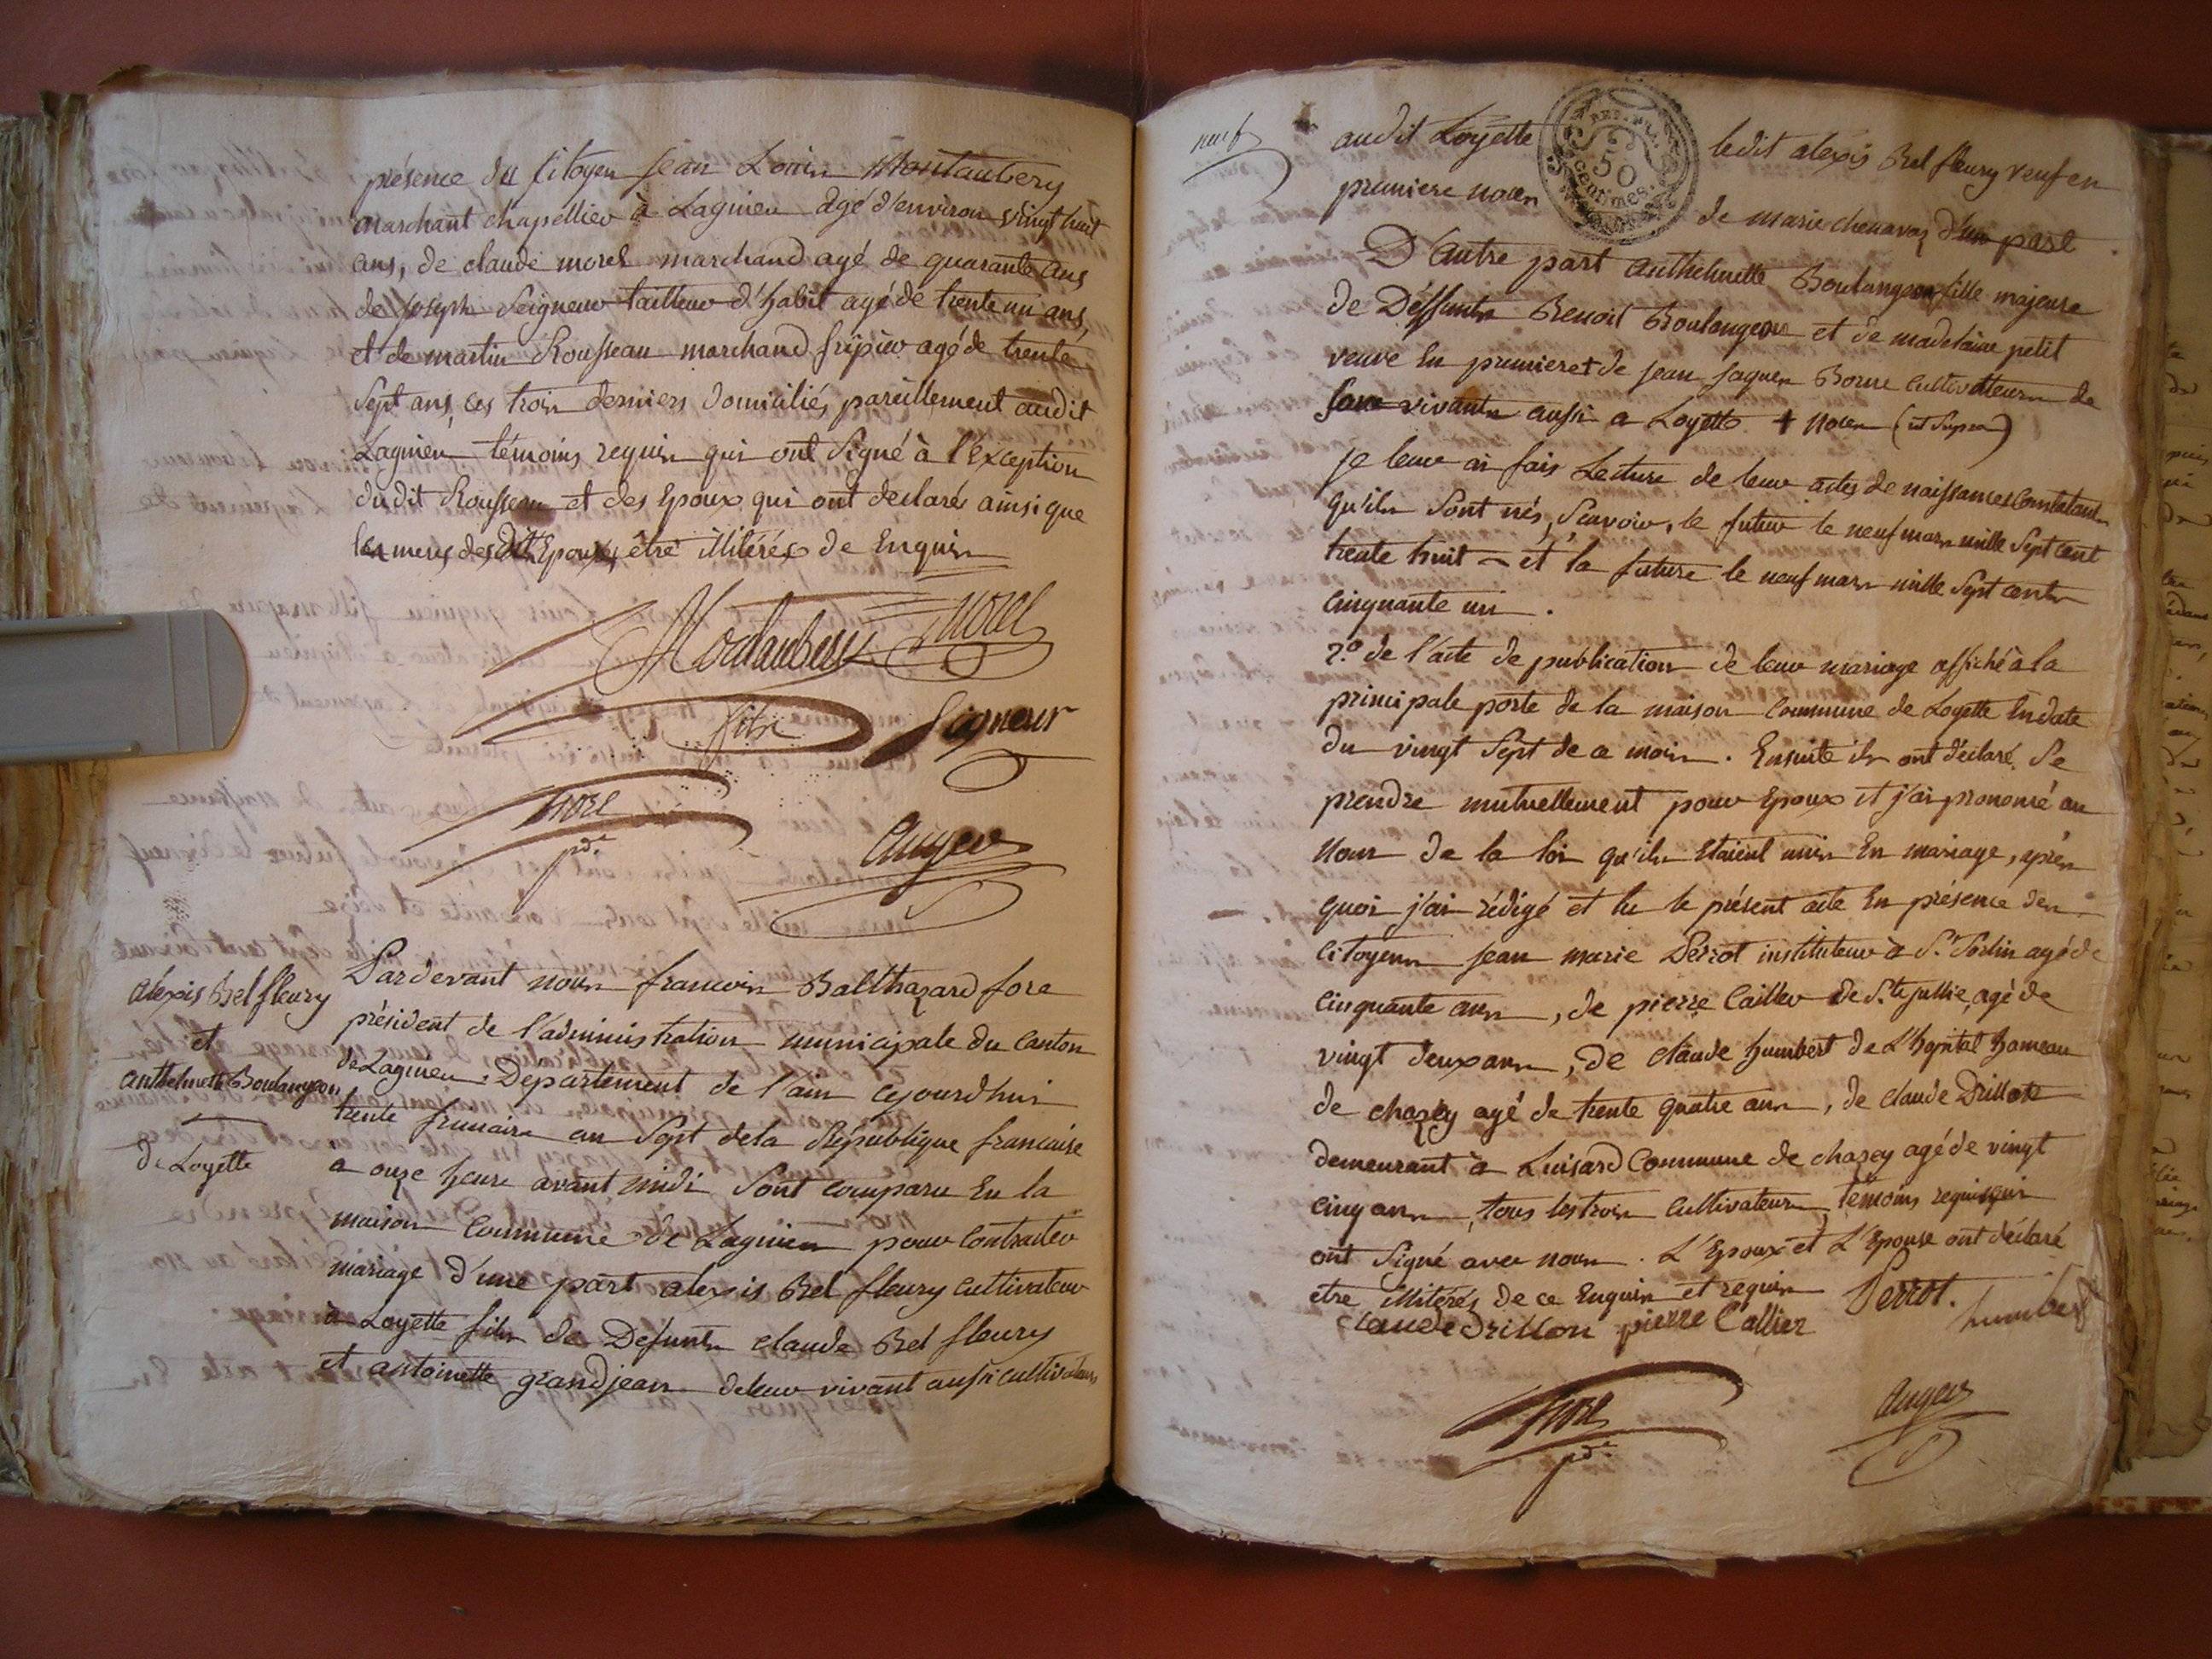 présence du Citoyen Jean Louis Montaubery
marchant chapellier à Lagnieu agé d'environ vingt huit
ans, de claude morel marchand agé de quarante ans
de Joseph Seigneur tailleur d'habit agé de trente un ans,
et de martin Rousseau marchand fripier agé de trente
Sept ans, ces trois derniers domiciliés pareillement audit
Lagnieu, témoins requis qui ont Signé à l'Exception
dudit Rousseau et des Epoux qui ont declarés ainsi que
les meres desdit Epoux, être illitérés de Enquis
Montaubery morel
fils Seigneur
fore
pdt
Auger
alexis Bel fleury
et
anthelmette Boulangeon
de Loyette
Pardevant nous francois Balthazard fore
président de l'administration municipale du Canton
de Lagnieu Departement de l'ain cejourdhui
trente frimaire an Sept de la République francaise
a onze heure avant midi Sont comparu En la
maison Commune de Lagnieu pour Contracter
mariage d'une part alexis Bel fleury cultivateur
à Loyette fils de Defunts claude Bel fleury
et antoinette grandjean deleur vivant aussi cultivateurs
neuf
audit Loyette ledit alexis Bel fleury veuf en
REP. FRA.
50
centimes.
premiere noces de marie chenavaz d'un part
D'autre part anthelmette Boulangeon fille majeure
de Deffunts Benoit Boulangeon et de madelaine petit
veuve En premieres + de Jean Jaques Borne cultivatteurs de
vivants aussi a Loyette + noces (ut Supra)
je leur ai fais Lecture de leur actes de naissances Constatant
qu'ils Sont nés, Scavoir, le futur le neuf mars mille Sept cent
trente huit - et la future le neuf mars mille Sept cents
Cinquante un.
2.º de l'acte de publication de leur mariage affiché à la
principale porte de la maison Commune de Loyette En date
du vingt Sept de ce mois. Ensuite ils ont déclaré Se
prendre mutuellement pour Epoux et j'ai prononcé au
Nom de la loi qu'ils Etaient unis En mariage, après
quoi j'ai rédigé et lu le présent acte En présence des
Citoyens Jean marie Perrot instituteur à St. Sorlin agé de
Cinquante ans, de pierre Caillier de Ste jullie, agé de
vingt deux ans, de claude humbert de L'hopital hameau
de chazey agé de trente quatre ans, de claude Drillon
demeurant à Luisard Commune de chazey agé de vingt
Cinq ans, tous les trois Cultivateurs, témoins requis qui
ont Signé avec nous. L'Epoux et L'Epouse ont déclaré
etre illitérés de ce Enquis et requis
claude drillon pierre Callier Perrot. humbert
fore
pdt
Auger